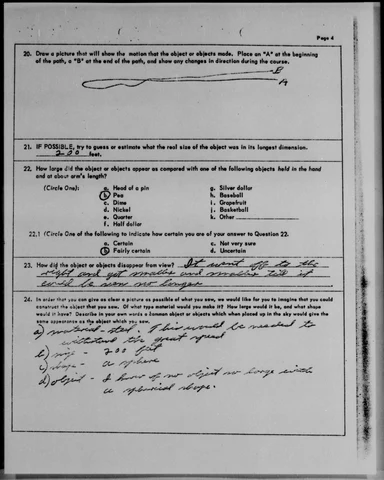 Page 4
20. Draw a picture that will show the motion that the object or objects made. Place an "A" at the beginning
of the path, a "B" at the end of the path, and show any changes in direction during the course.
B
A
21. IF POSSIBLE, try to guess or estimate what the real size of the object was in its longest dimension.
200 feet.
22. How large did the object or objects appear as compared with one of the following objects held in the hand
and at about arm's length?
(Circle One): a. Head of a pin g. Silver dollar
b. Pea h. Baseball
c. Dime i. Grapefruit
d. Nickel j. Basketball
e. Quarter k. Other
f. Half dollar
22.1 (Circle One of the following to indicate how certain you are of your answer to Question 22.
a. Certain c. Not very sure
b. Fairly certain d. Uncertain
23. How did the object or objects disappear from view? It went off to the
right and got smaller and smaller till it
could be seen no longer
24. In order that you can give as clear a picture as possible of what you saw, we would like for you to imagine that you could
construct the object that you saw. Of what type material would you make it? How large would it be, and what shape
would it have? Describe in your own words a common object or objects which when placed up in the sky would give the
same appearance as the object which you saw.
a) material - steel. This would be needed to
withstand the great speed
b) size - 200 feet
c) shape - a sphere
d) object - I know of no object so large with
a spherical shape.